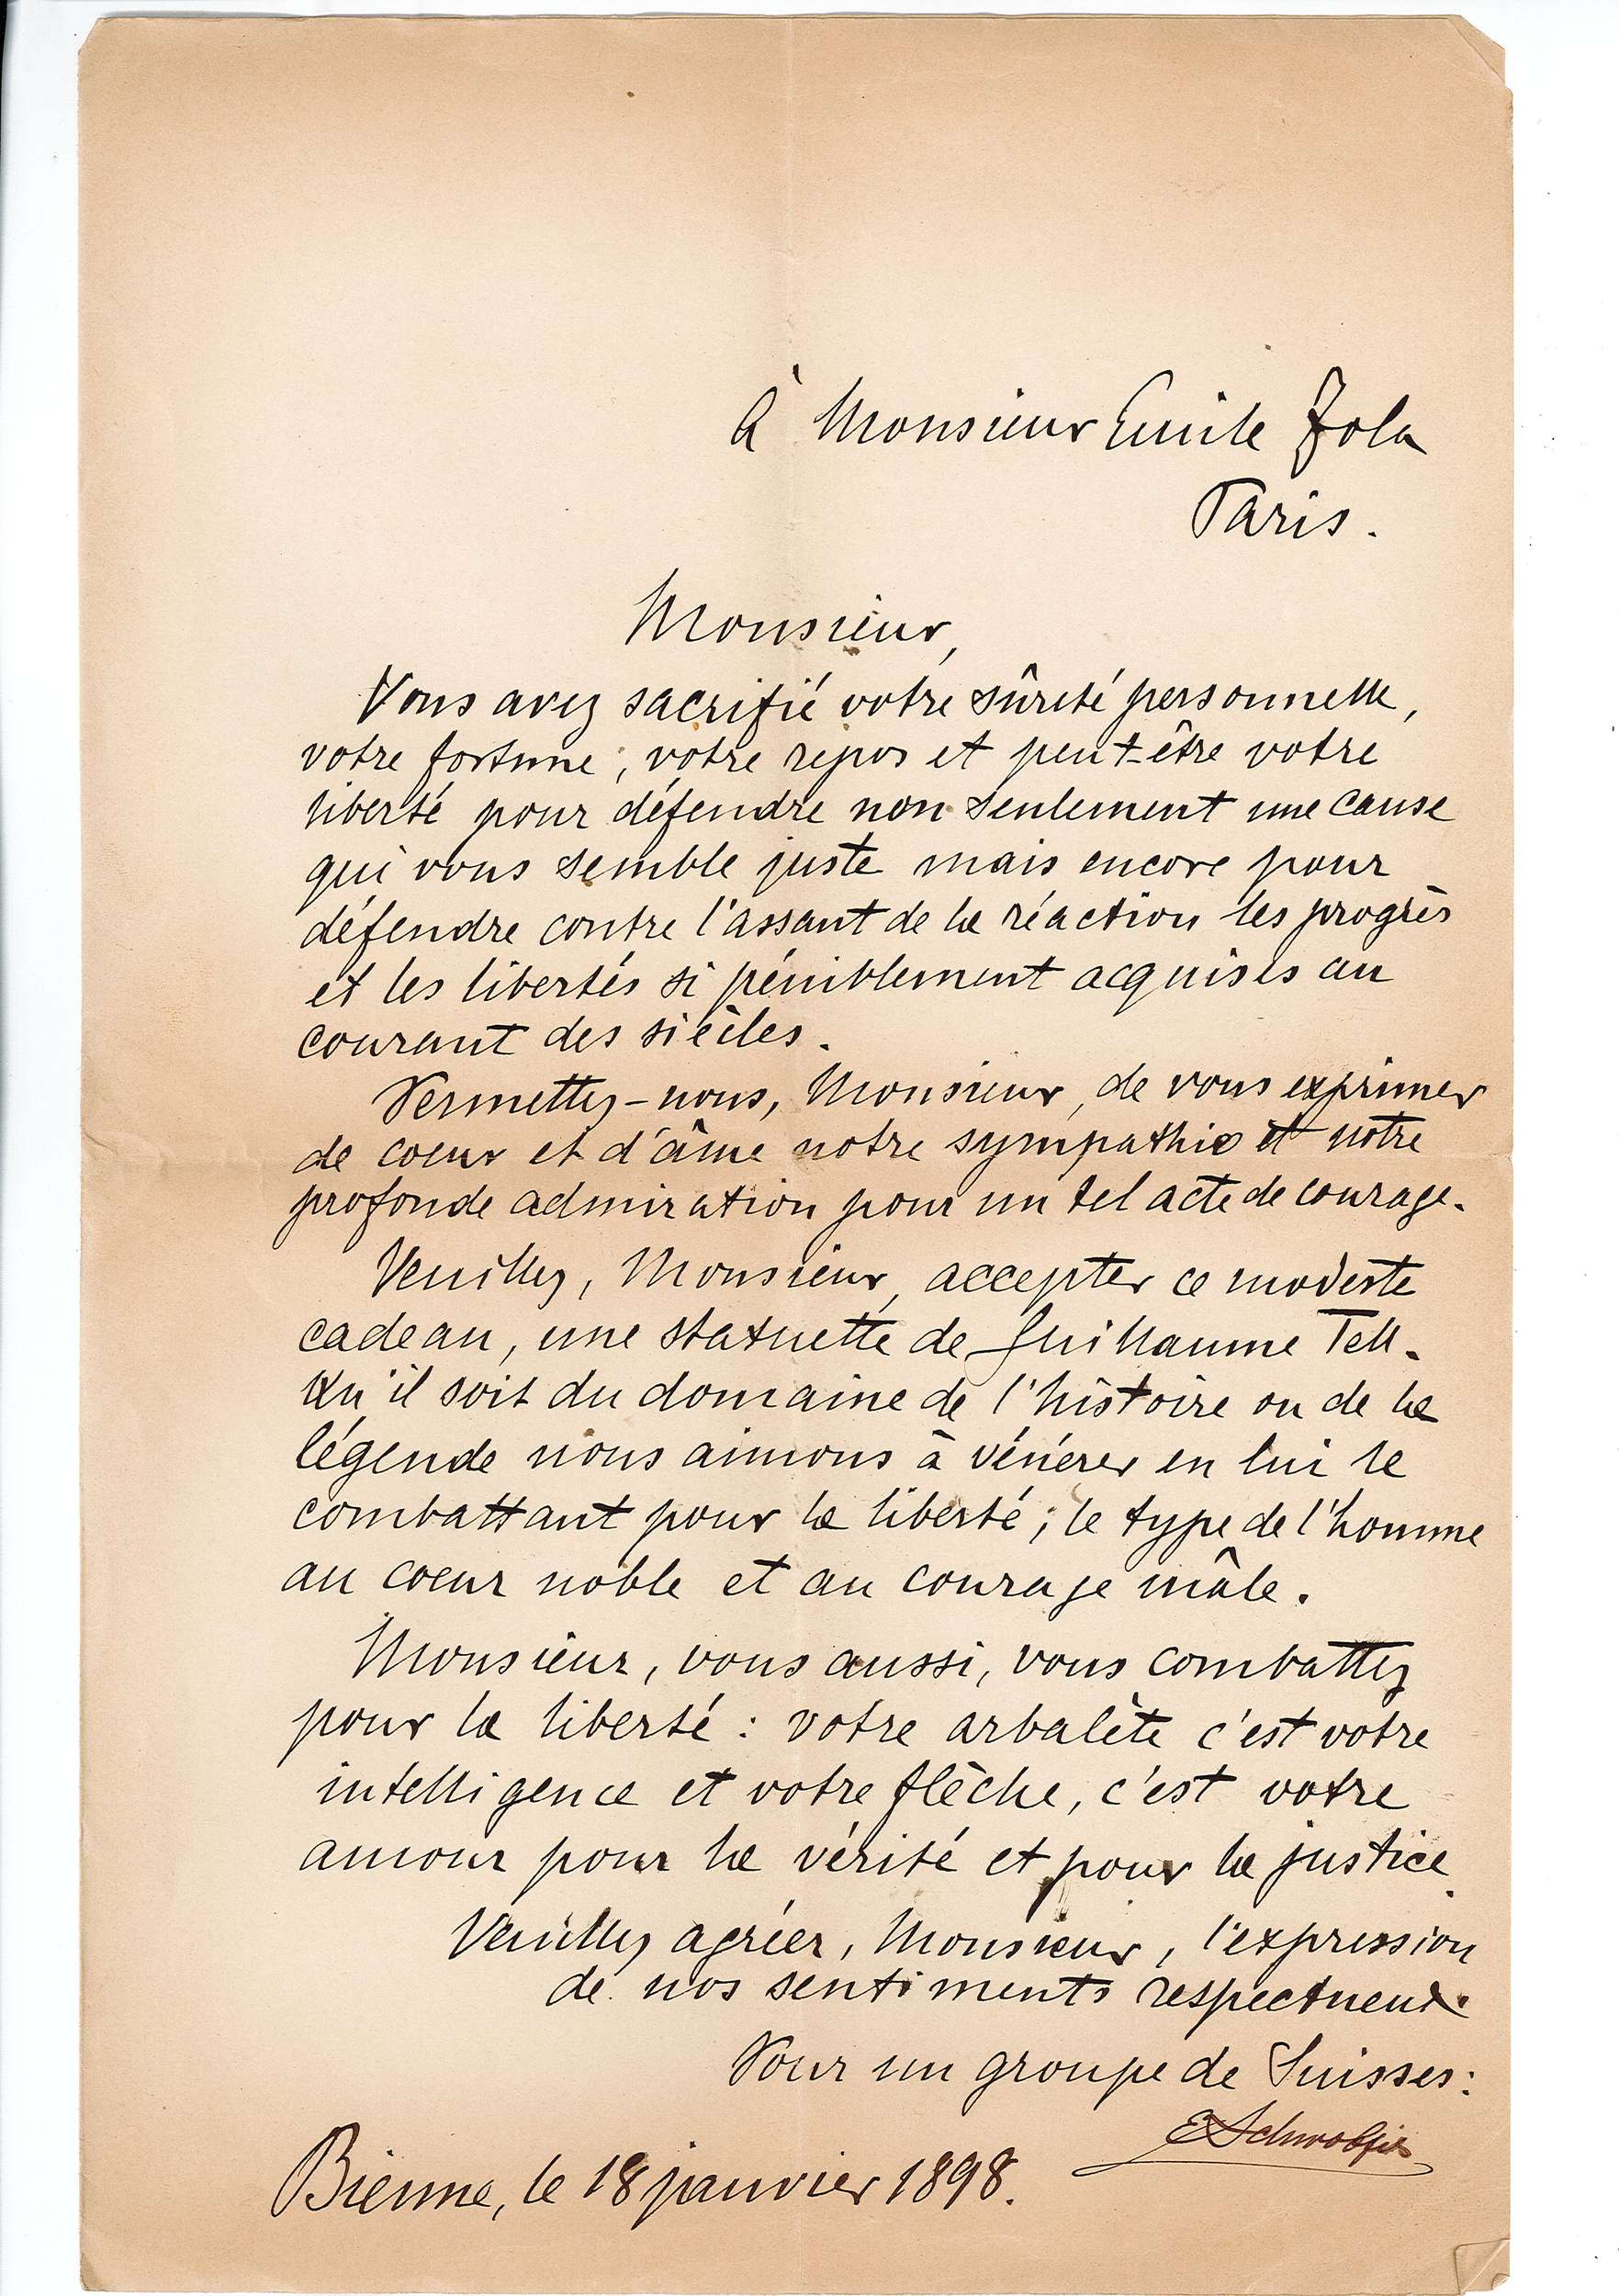 À Monsieur Emile Zola
Paris.
Monsieur,
Vous avez sacrifié votre sûreté personnelle,
votre fortune, votre repos et peut-être votre
liberté pour défendre non seulement une cause
qui vous semble juste mais encore pour
défendre contre l'assaut de la réaction les progrès
et les libertés si péniblement acquises au
courant des siècles.
Permettez-nous, Monsieur, de vous exprimer
de coeur et d'âme notre sympathie et notre
profonde admiration pour un tel acte de courage.
Veuillez, Monsieur, accepter ce modeste
cadeau, une statuette de Guillaume Tell.
Qu'il soit du domaine de l'histoire ou de la
légende nous aimons à vénérer en lui le
combattant pour la liberté; le type de l'homme
au coeur noble et au courage mâle.
Monsieur, vous aussi, vous combattez
pour la liberté : votre arbalète c'est votre
intelligence et votre flèche, c'est votre
amour pour la vérité et pour la justice.
Veuillez agréer, Monsieur, l'expression
de nos sentiments respectueux.
Pour un groupe de Suisses:
Bienne, le 18 janvier 1898.